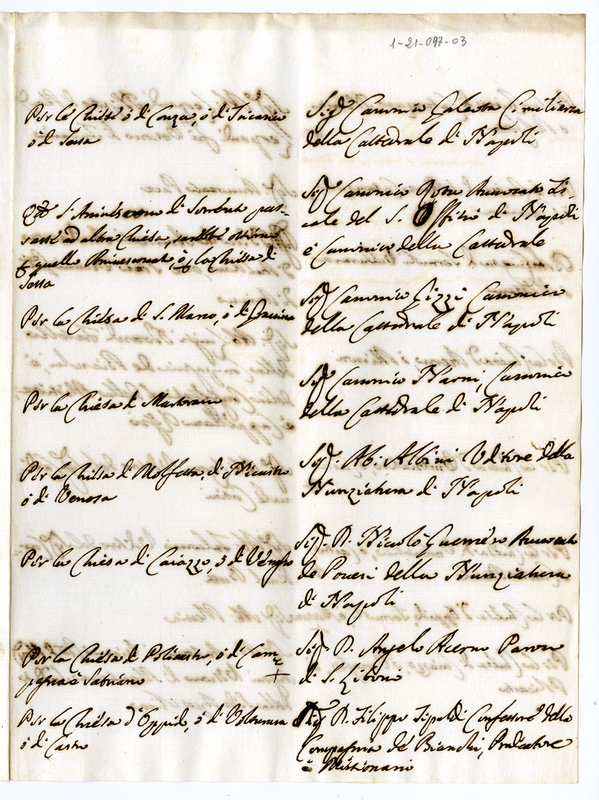 1-21-097-03
Per la Chiesa ò di Conza, ò di Tricarico
ò di Sessa
Sig.r Canonico Galeotta Cimiliarca
della Cattedrale di Napoli
S. di Sorbo pas-
sasse ad altra Chiesa, sarebbe
quella ò la Chiesa di
Sessa
Sig.r Canonico Avvocato Fi-
scale del S. Offitio di Napoli
e Canonico della Cattedrale
Per la Chiesa di S. Marco, ò di
Sig.r Canonico Lizzi Canonico
della Cattedrale di Napoli
Per la Chiesa di
Sig.r Canonico Canonico
della Cattedrale di Napoli
Per la Chiesa di Molfetta, di Nicastro
ò di Venosa
Sig.r Ab: Albini Uditore della
Nunziatura di Napoli
Per la Chiesa di Caiazzo, ò di
Sig.r D. Nicolò Guerriero Avvocato
de Poveri della Nunziatura
di Napoli
Per la Chiesa di Policastro, ò di Cam-
pagna e Satriano
Sig.r D. Angelo Acerno
di S. Liborio
Per la Chiesa d'Oppido, ò di Volturara
ò di Castro
Sig.r D. Filippo Confessore della
Compagnia de' Bianchi, Predicatore
e Missionario